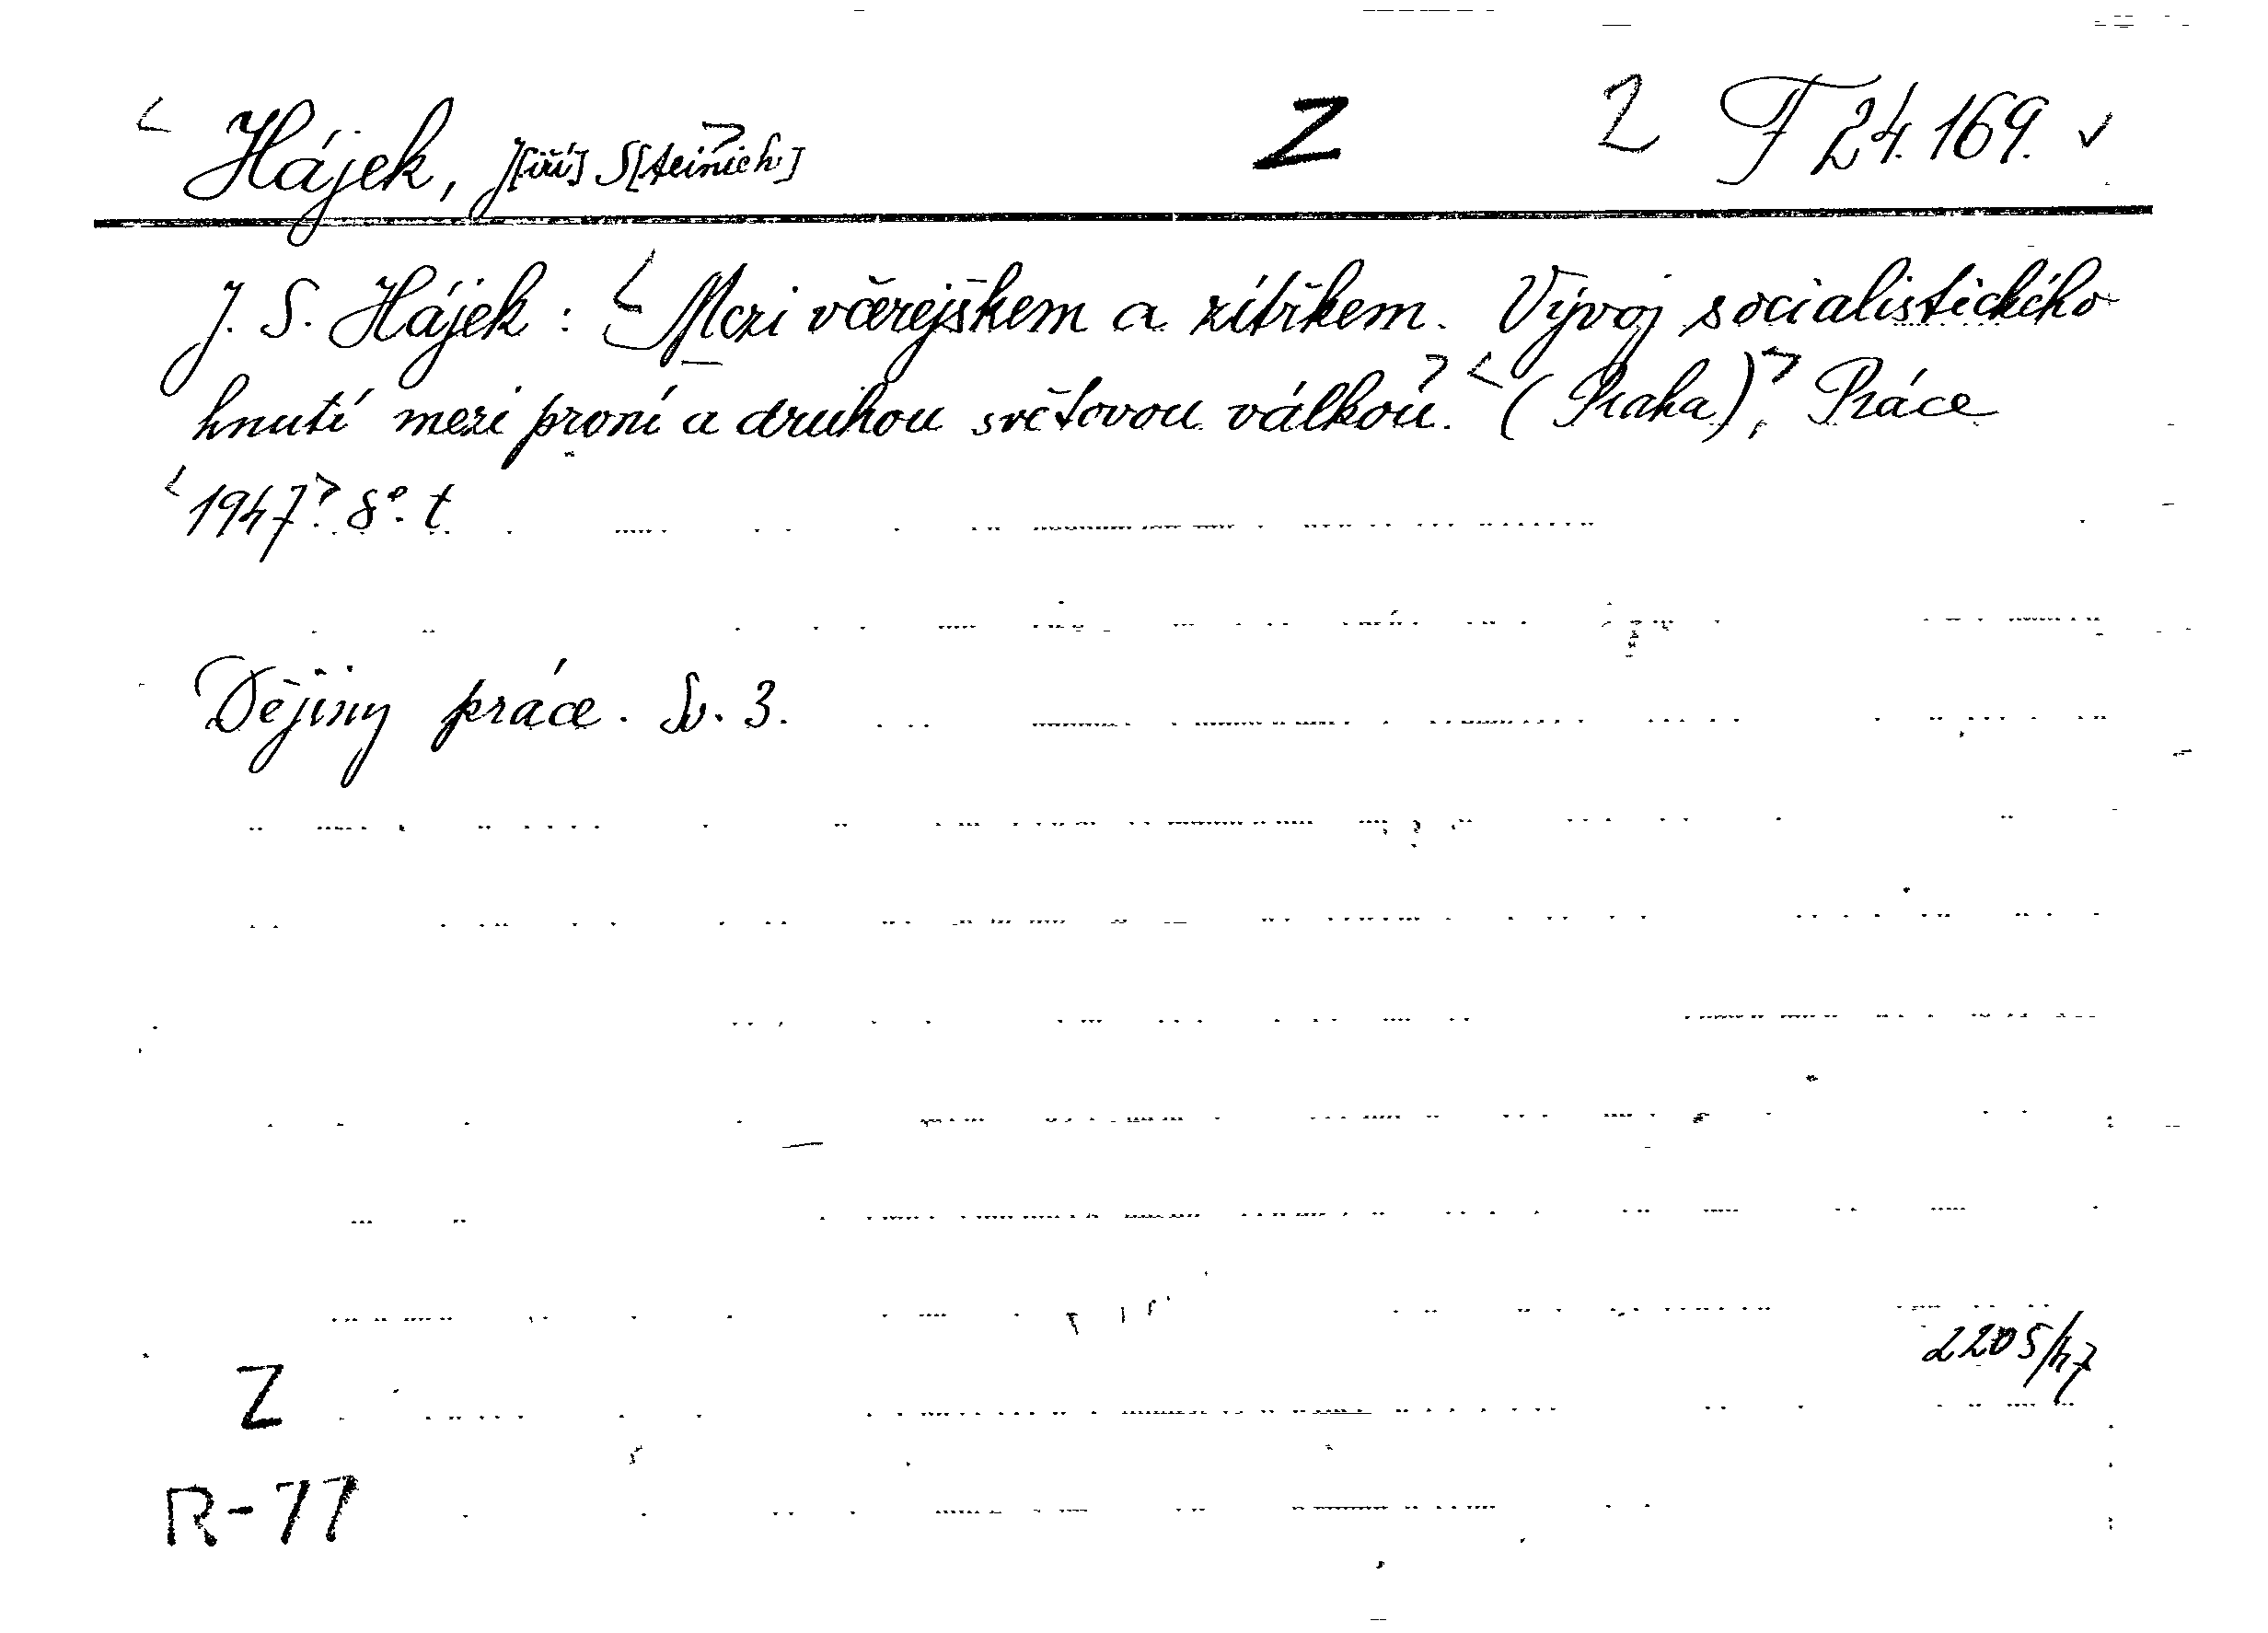 Hájek, J[iří] S[teinich] Z 2 F 24.169.
J. S. Hájek : Mezi včerejškem a zítřkem. Vývoj socialistického
hnutí mezi první a druhou světovou válkou. (Praha), Práce
1947. 8°. t.
Dějiny práce. Sv. 3.
2205/47
Z
R-77